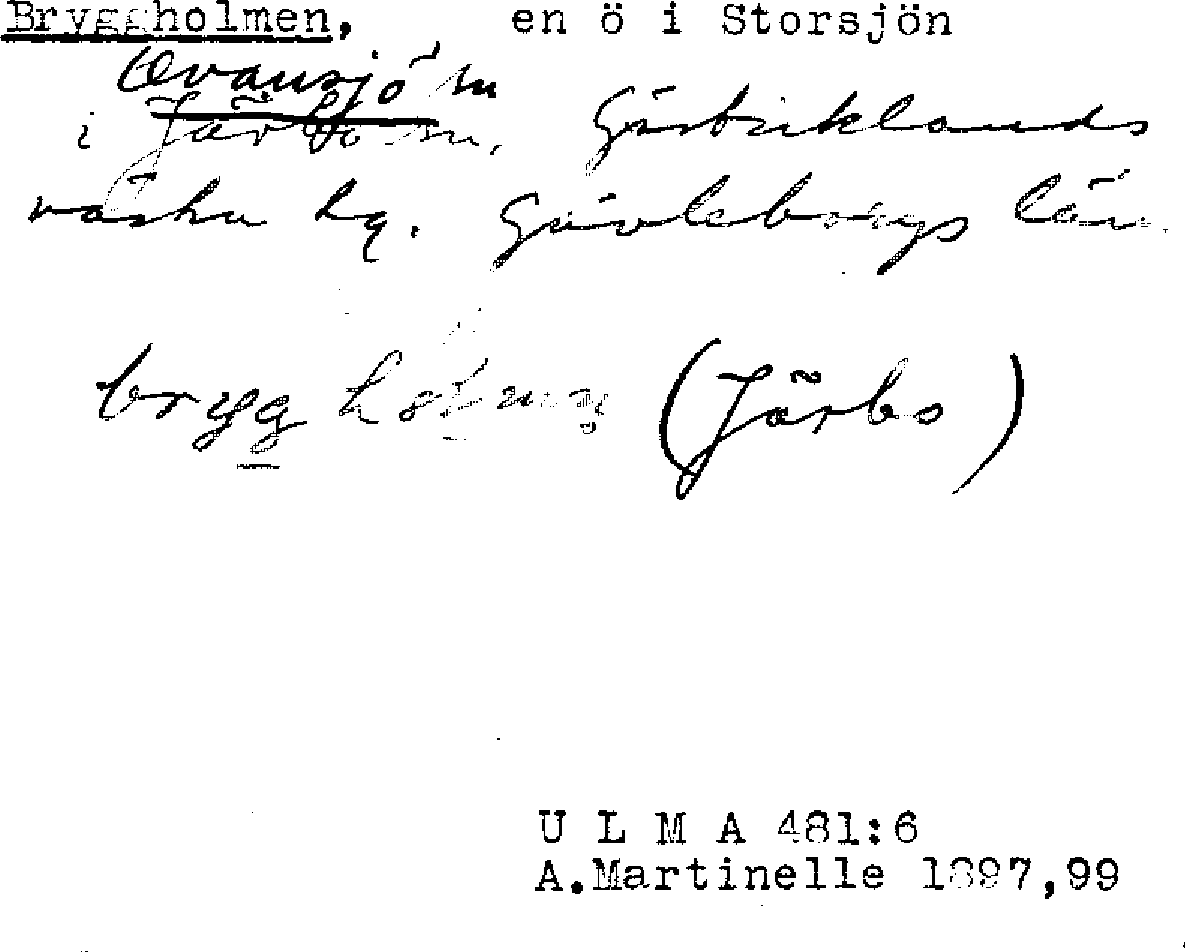 Bryggholmen, en ö i Storsjön
Ovansjö sn
i Järbo sn, Gästriklands
västra hg. Gävleborgs län.
brygg holmṇ (Järbo)
U L M A 481:6
A.Martinelle 1897,99